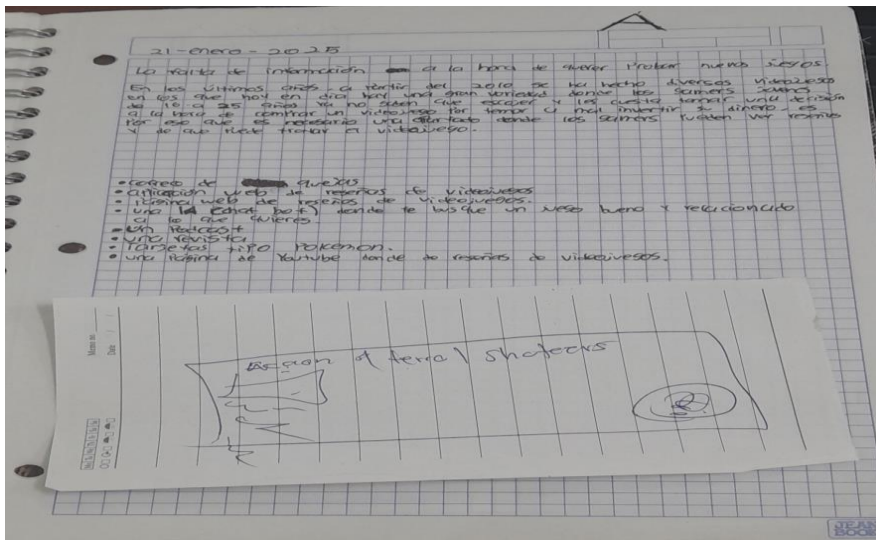 A
21-enero-2025
La falta de información a la hora de querer probar nuevos juegos
En los últimos años, a partir del 2010 se ha hecho diversos videojuegos
en los que hoy en día hay una gran variedad donde los gamers jovenes
de 16 a 25 años ya no saben que escoger y les cuesta tomar una decisión
a la hora de comprar un videojuego por temor a mal invertir su dinero, es
por eso que es necesario una apartado donde los gamers pueden ver reseñas
y de que puede tratar el videojuego.
• correo de quejas
• aplicación web de reseñas de videojuegos
• Página web de reseñas de videojuegos.
• una IA (chat bot) donde te busque un juego bueno y relacionado
a lo que quieres.
• Un Podcast
• una revista
• Tarjetas tipo Pokemon.
• una Página de Youtube donde de reseñas de videojuegos.
Memo no.
Date / /
JEAN
BOOK